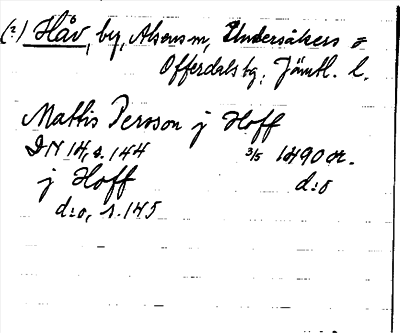 (?) Håv, by, Alsens sn, Undersåkers o
Offerdals tg, Jämtl. l.
Mattis Persson j Hoff
DN 14, s. 144 3/5 1490 or.
j Hoff d:o
d:o, s. 145